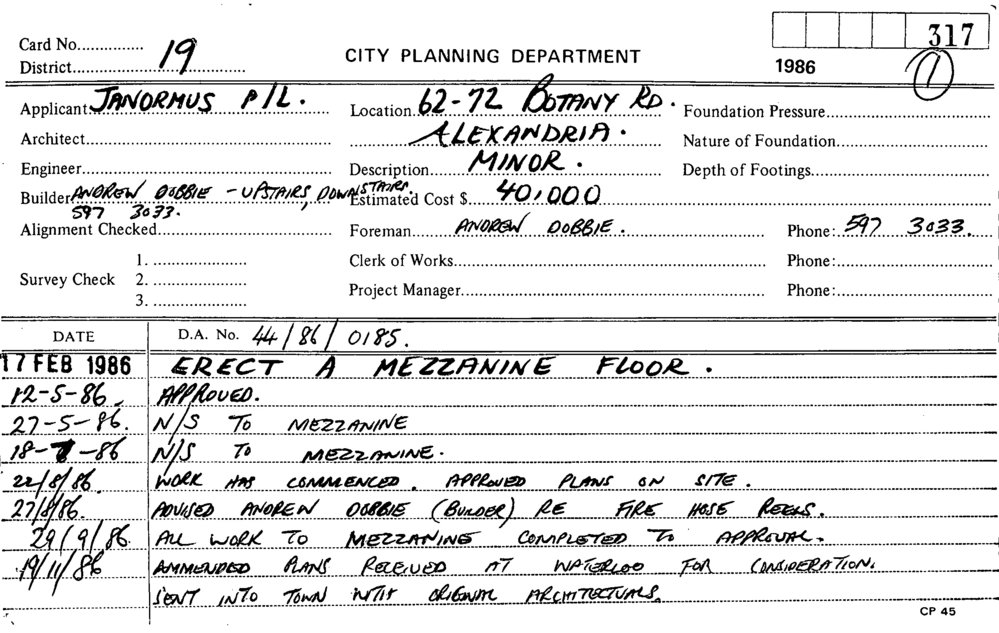 317
Card No...............
19
District...............
CITY PLANNING DEPARTMENT
1986
1
Applicant JANORMUS P/L.
Location 62-72 BOTANY RD.
Foundation Pressure...............
Architect...............
ALEXANDRIA.
Nature of Foundation...............
Engineer...............
Description MINOR.
Depth of Footings...............
Builder ANDREW DOBBIE - UPSTAIRS, DOWNSTAIRS.
597 3033.
Estimated Cost $ 40,000
Alignment Checked...............
Foreman ANDREW DOBBIE.
Phone: 597 3033.
Survey Check
1. ...............
2. ...............
3. ...............
Clerk of Works...............
Phone:...............
Project Manager...............
Phone:...............
DATE D.A. No. 44/86/0185.
17 FEB 1986 ERECT A MEZZANINE FLOOR.
12-5-86. APPROVED.
27-5-86. N/S TO MEZZANINE
18-7-86 N/S TO MEZZANINE.
22/8/86. WORK HAS COMMENCED. APPROVED PLANS ON SITE.
27/8/86. ADVISED ANDREW DOBBIE (BUILDER) RE FIRE HOSE REELS.
29/9/86. ALL WORK TO MEZZANINE COMPLETED TO APPROVAL.
19/11/86 AMMENDED PLANS RECEIVED AT WATERLOO FOR CONSIDERATION.
SENT INTO TOWN WITH ORIGINAL ARCHITECTUALS.
CP 45